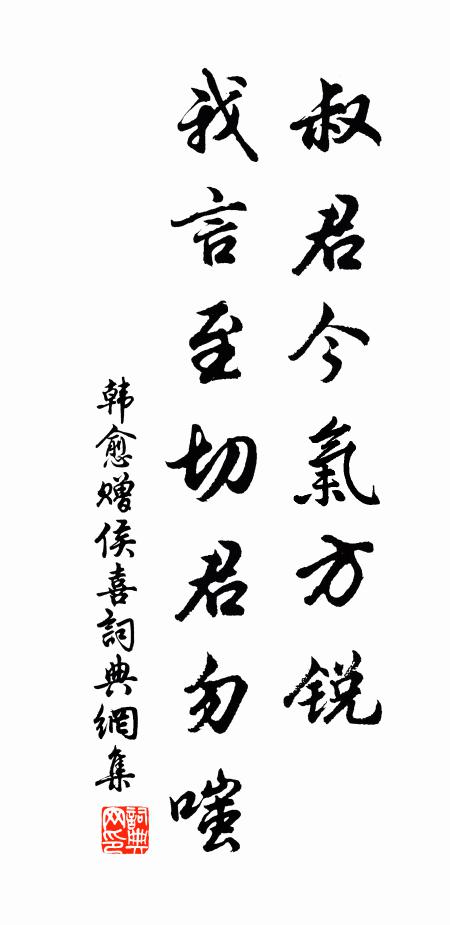 叔君今氣方锐
我言至切君勿嗤
韩愈赠侯喜詞典網集
詞典网印